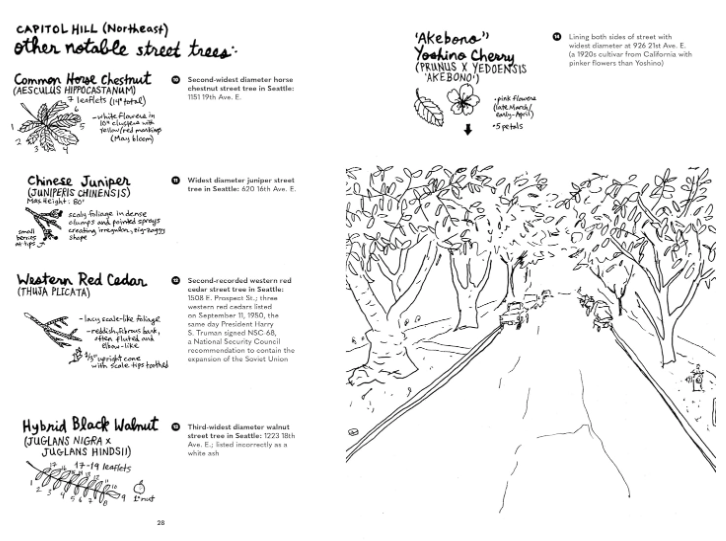 CAPITOL HILL (Northeast)
other notable street trees:
Common Horse Chestnut
(AESCULUS HIPPOCASTANUM)
7 leaflets (14" total)
1
2
3
4
5
6
-white flowers in
10" clusters with
yellow/red markings
(May bloom)
10
Second-widest diameter horse
chestnut street tree in Seattle:
1151 19th Ave. E.
Chinese Juniper
(JUNIPERIS CHINENSIS)
Max Height: 80'
scaly foliage in dense
clumps and pointed sprays
creating irregular, zig-zaggy
shape
small
berries
at tips
11
Widest diameter juniper street
tree in Seattle: 620 16th Ave. E.
Western Red Cedar
(THUJA PLICATA)
-lacy scale-like foliage
-reddish, fibrous bark,
often fluted and
elbow-like
upright cone
with scale tips toothed
12
Second-recorded western red
cedar street tree in Seattle:
1508 E. Prospect St.; three
western red cedars listed
on September 11, 1950, the
same day President Harry
S. Truman signed NSC-68,
a National Security Council
recommendation to contain the
expansion of the Soviet Union
Hybrid Black Walnut
(JUGLANS NIGRA X
JUGLANS HINDSII)
17-19 leaflets
1 2 3 4 5 6 7 8 9
1" nut
13
Third-widest diameter walnut
street tree in Seattle: 1223 18th
Ave. E.; listed incorrectly as a
white ash
28
'Akebono"
Yoshino Cherry
(PRUNUS X YEDOENSIS
'AKEBONO')
•pink flowers
(late March/
early-April)
•5 petals
14
Lining both sides of street with
widest diameter at 926 21st Ave. E.
(a 1920s cultivar from California with
pinker flowers than Yoshino)